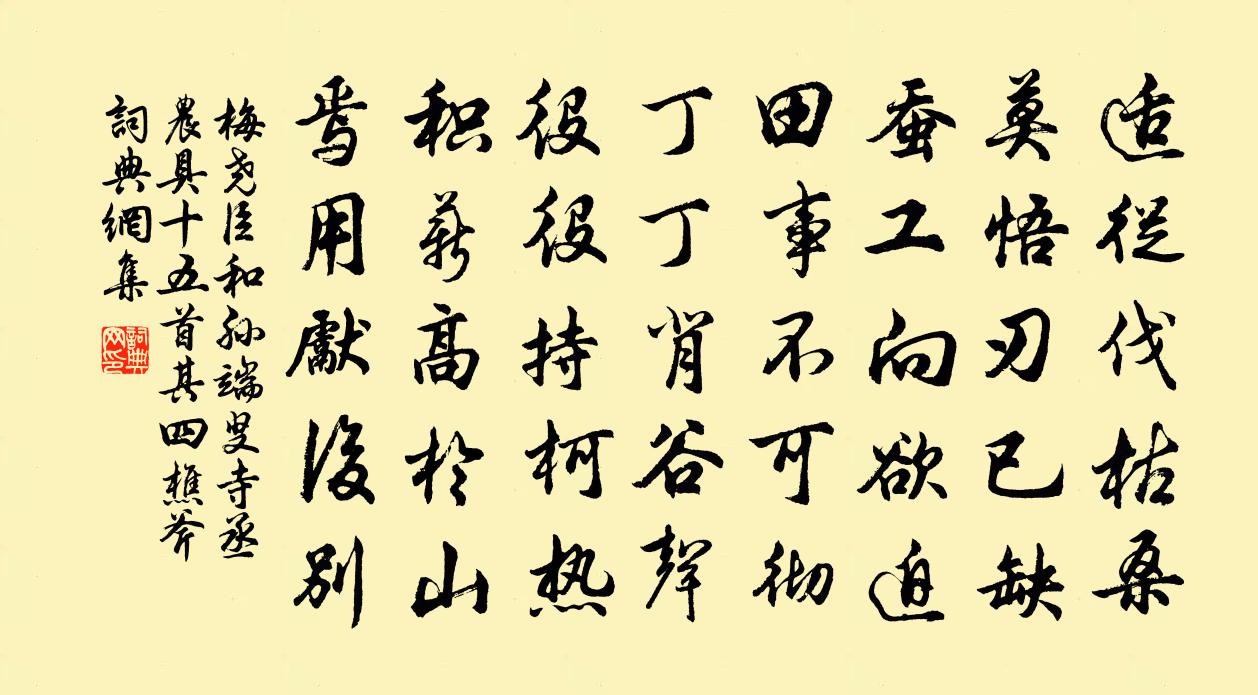 适從伐枯桑
莫悟刃已缺
蚕工向欲迫
田事不可彻
丁丁肖谷聲
役役持柯热
积薪高於山
焉用獻後別
梅尧臣和孙端叟寺丞
農具十五首其四樵斧
詞典網集
詞典网印